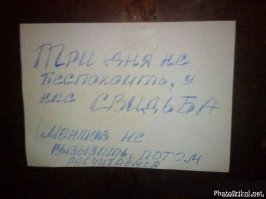 Три дня не
беспокоить, у
нас СВАДЬБА
(Ментов не
вызывить, потом
расчитаемся
PhotoPrikol.net